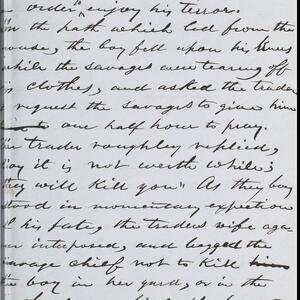 order" enjoy his terror.
In the path which led from the
house, the boy fell upon his knees
while the savages were tearing off
his clothes, and asked the trader
request the savages to give him
to one half hour to pray.
the trader roughley replied,
it is not worth while;
they will kill you" As they boy
stood in momentary expection
of his fate, the traders wife again
interposed, and begged the
savage chief not to kill him
the boy in her yard, or in the